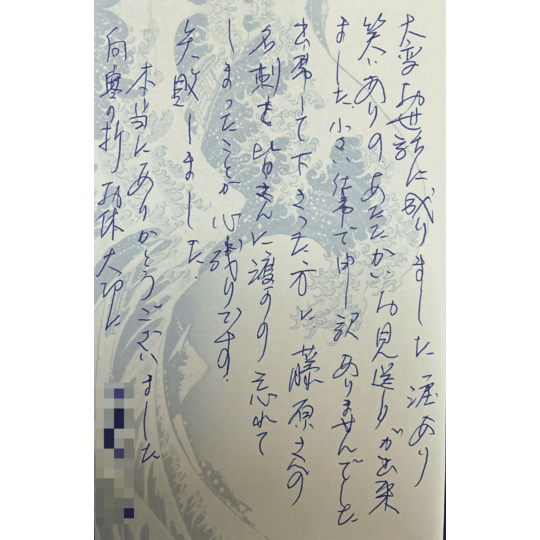 大変お世話に成りました 涙あり
笑いありの あたたかいお見送りが出来
ました 小さい仕事で申し訳ありませんでした
出席して下さった方に 藤原さんの
名刺を皆さんに渡すの 忘れて
しまったことが心残りです.
失敗しました.
本当にありがとうございました
向寒の折 お体大切に